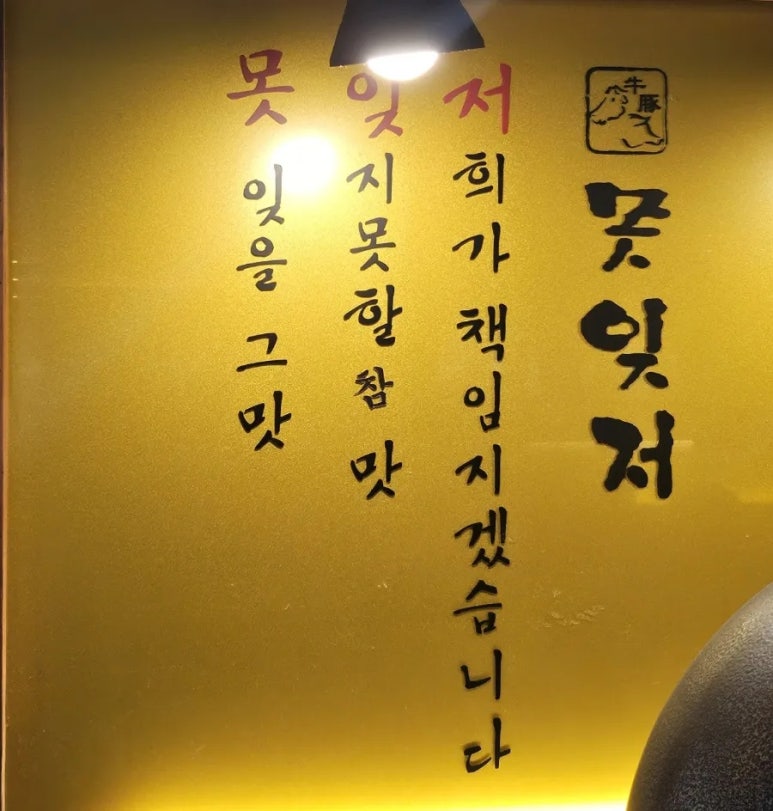 못 잊을 그 맛
잊지못할 참 맛
저희가 책임지겠습니다
牛豚
못잊저